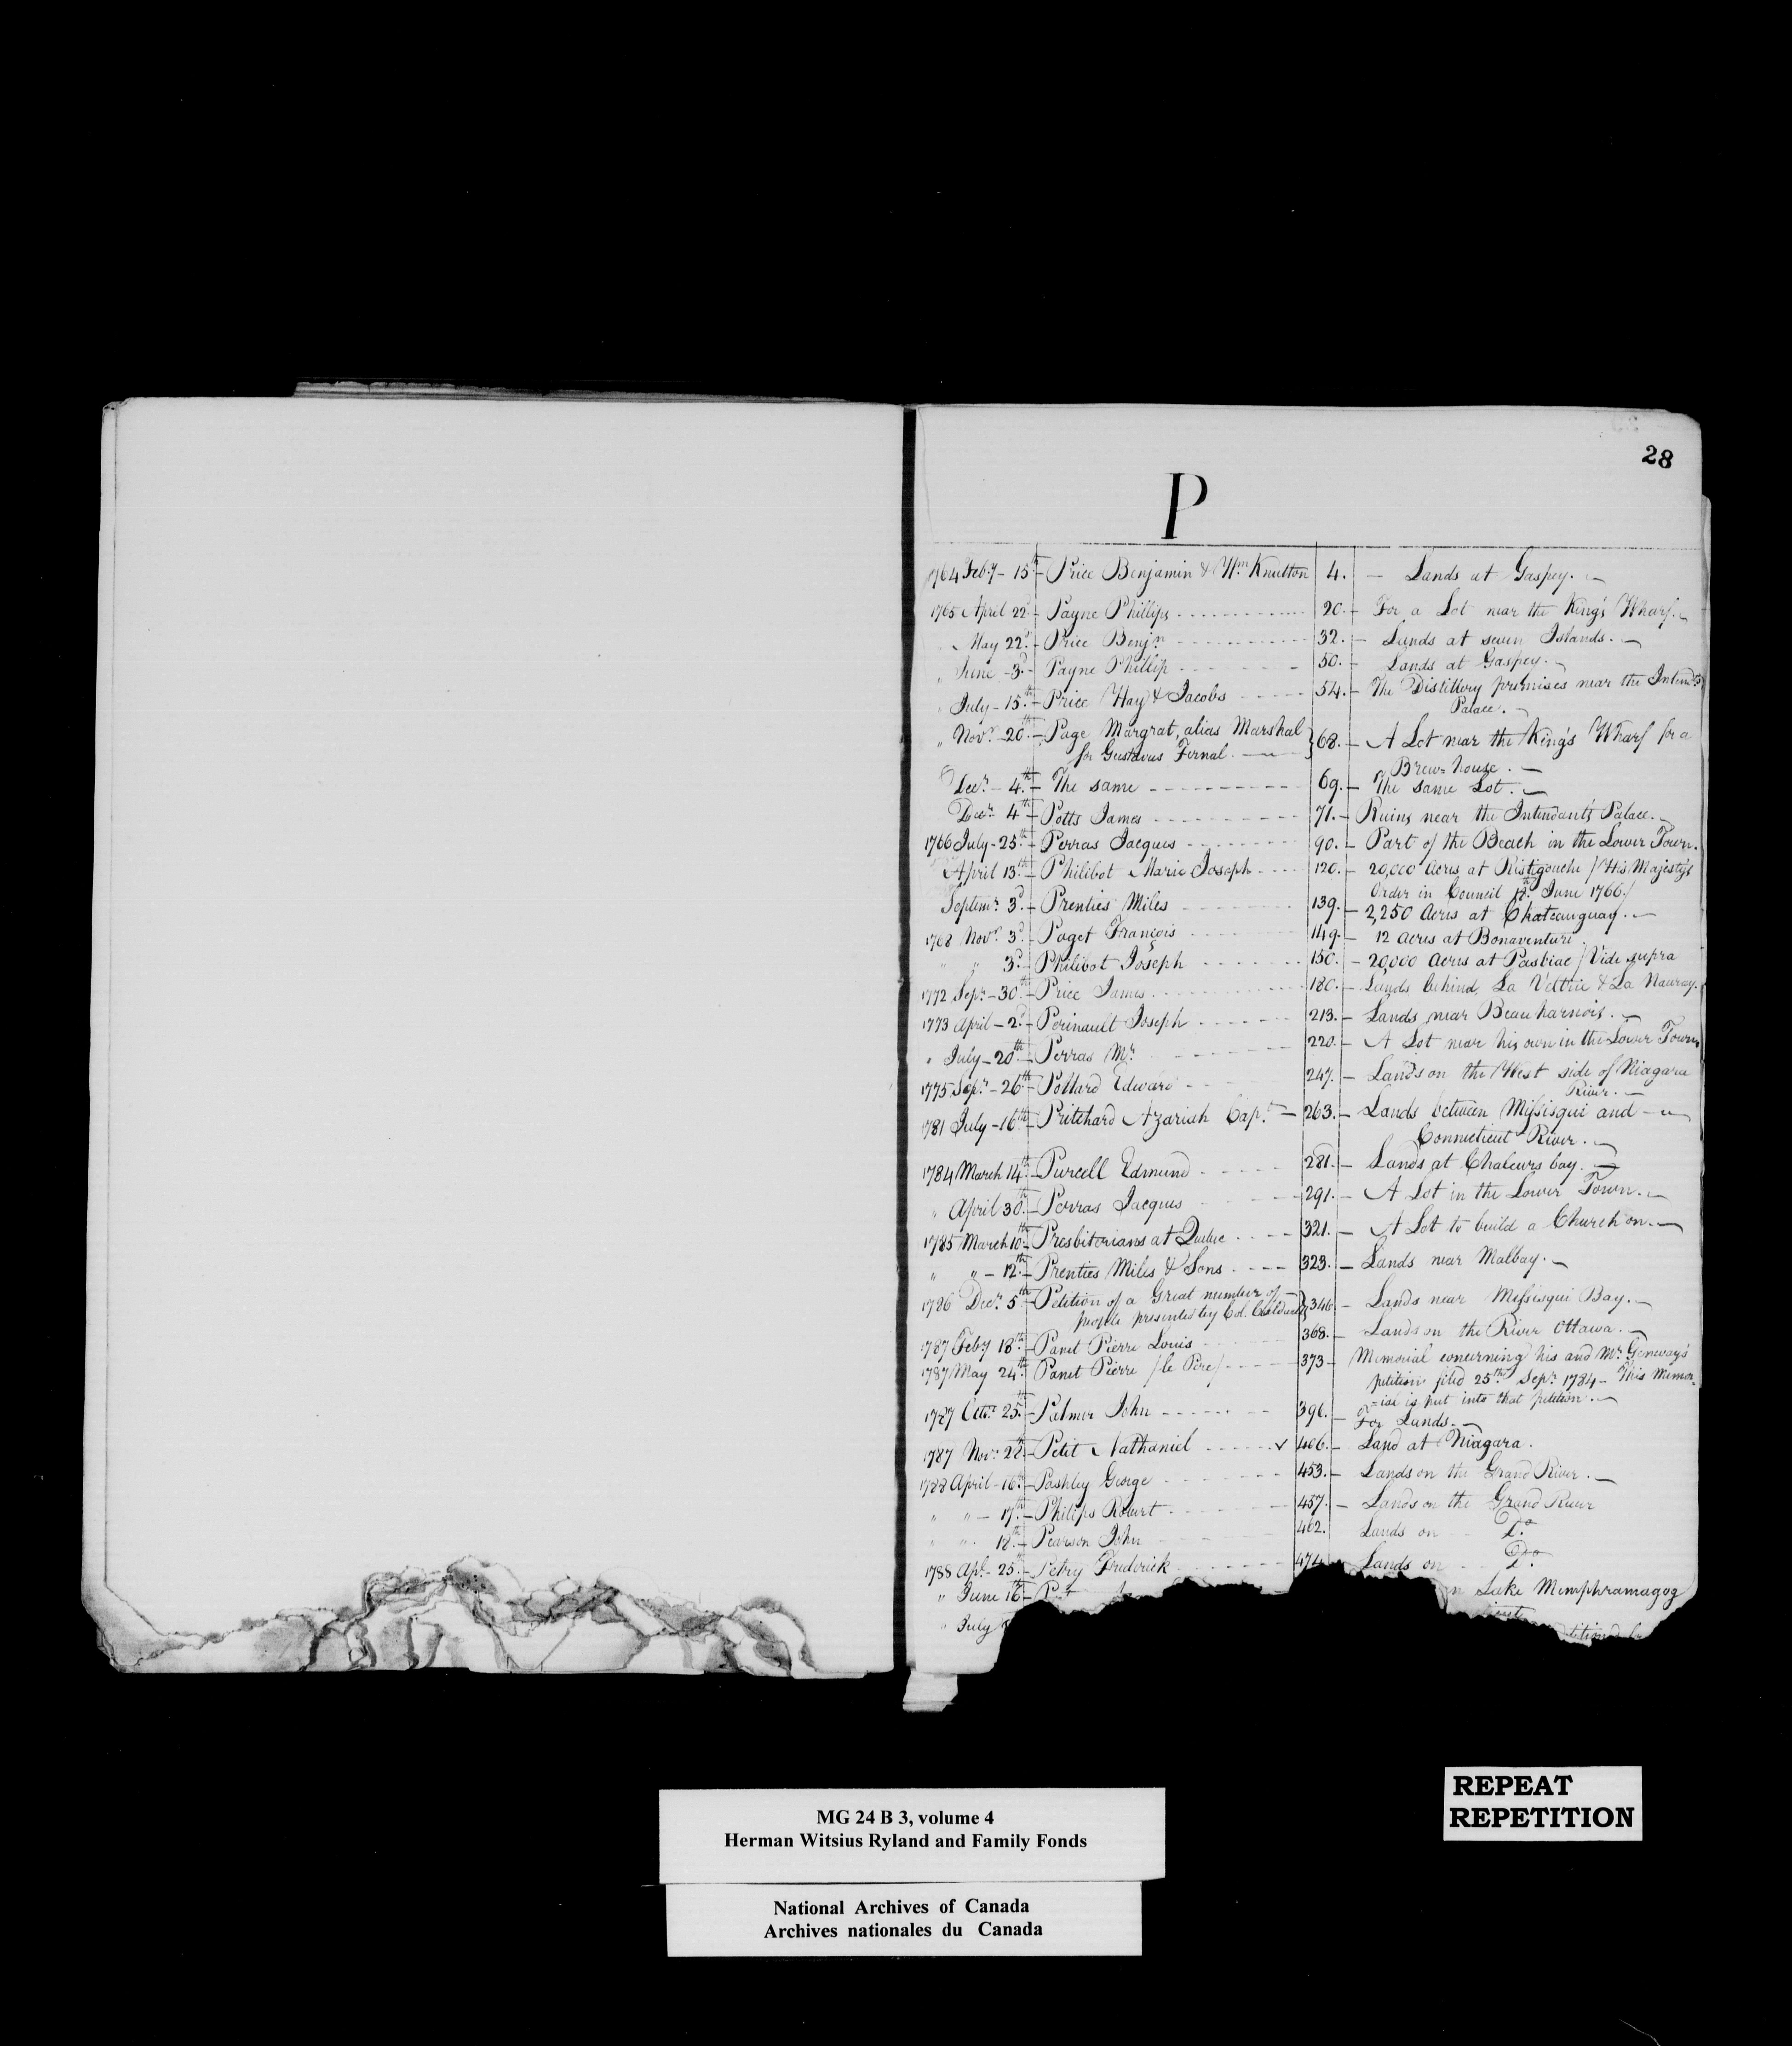 28
P
1764 Feby - 15th - Price Benjamin & Wm Knutton 4. - Lands at Gaspey. -
1765 April 22d - Payne Phillips 20. - For a Lot near the King's Wharf. -
" May 22d - Price Benjn 32. - Lands at seven Islands. -
" June - 3d - Payne Phillip 50. - Lands at Gaspey. -
" July - 15th - Price Hay & Jacobs 54. - The Distillery premises near the Intendts
Palace. -
" Novr - 20th - Page Margrat, alias Marshal } 68. - A Lot near the King's Wharf for a
for Gustavus Fernal. - Brew-house. -
Decr - 4th - The same 69. - The same Lot. -
Decr 4th - Potts James 71. - Ruins near the Intendant's Palace. -
1766 July - 25th - Perras Jacques 90. - Part of the Beach in the Lower Town.
April 13th - Philibot Marie Joseph 120. - 20,000 Acres at Ristigouche / His Majesty's
Order in Council June 1766 /
Septemr 3d - Prenties Miles 139. - 2,250 Acres at Chateauguay. -
1768 Novr 3d - Paget François 149. - 12 Acres at Bonaventure.
" " 3d - Philibot Joseph 150. - 20,000 Acres at Pasbiac / Vide supra
1772 Sepr - 30th - Price James 180. - Lands behind La Valtrie & La Nauray.
1773 April - 2d - Perinault Joseph 213. - Lands near Beauharnois. -
" July - 20th - Perras Mr 220. - A Lot near his own in the Lower Town
1775 Sepr - 26th - Pollard Edward 247. - Lands on the West side of Niagara
River. -
1781 July - 16th - Pritchard Azariah Capt - 263. - Lands between Missisqui and -
Connecticut River. -
1784 March 14th - Purcell Edmund 281. - Lands at Chaleurs bay. -
" April 30th - Perras Jacques 291. - A Lot in the Lower Town. -
1785 March 10th - Presbiterians at Quebec 321. - A Lot to build a Church on. -
" " - 12th - Prenties Miles & Sons 323. - Lands near Malbay. -
1786 Decr 5th - Petition of a Great number of } 346. - Lands near Missisqui Bay. -
people presented by Col.
1787 Feby 18th - Panet Pierre Louis 368. - Lands on the River Ottawa. -
1787 May 24th - Panet Pierre / le Pere / 373 - Memorial concerning his and Mr Geneway's
petition filed 25th Sepr 1784 - This Memor-
=ial is put into that petition. -
1787 Octr 25th - Palmer John 396. - For Lands. -
1787 Novr 28th - Petit Nathaniel ✓ 406. - Land at Niagara.
1788 April - 16th - Pashley George 453. - Lands on the Grand River. -
" " - 17th - Philips Robert 457. - Lands on the Grand River
" " 18th - Pearson John 462. Lands on Do
1788 Apl - 25th - Petry Frederick 474 Lands on Do
" June 16th - P Lake Memphramagog
" July
REPEAT
REPETITION
MG 24 B 3, volume 4
Herman Witsius Ryland and Family Fonds
National Archives of Canada
Archives nationales du Canada